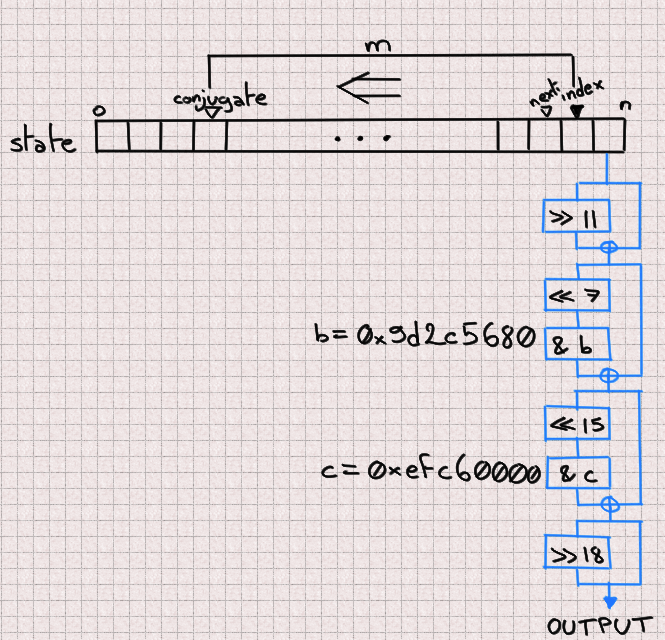 m
conjugate
next index
0
n
state
. . .
>> 11
<< 7
b = 0x9d2c5680
& b
<< 15
c = 0xefc60000
& c
>> 18
OUTPUT